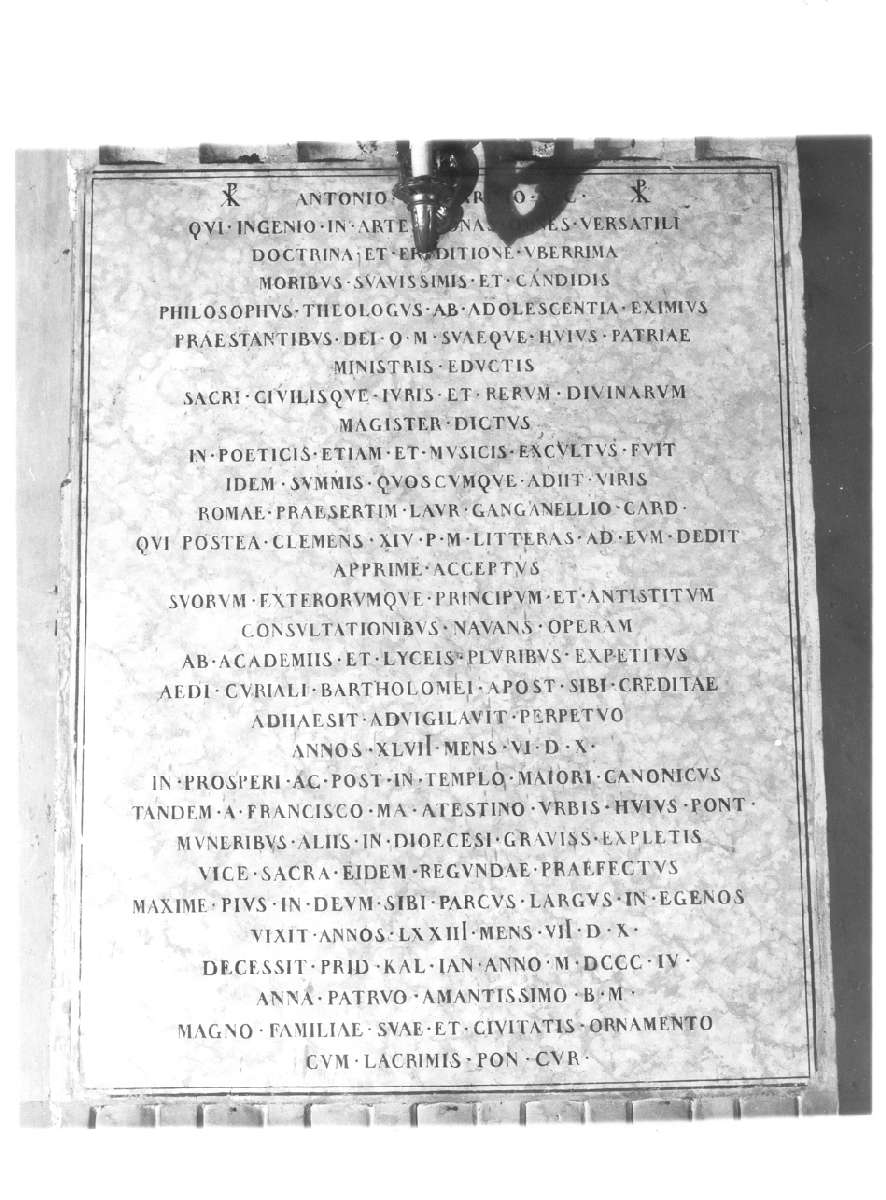 ☧ ANTONIO · ☧
QVI · INGENIO · IN · VERSATILI
DOCTRINA · ET · VBERRIMA
MORIBVS · SVAVISSIMIS · ET · CANDIDIS
PHILOSOPHVS · THEOLOGVS · AB · ADOLESCENTIA · EXIMIVS
PRAESTANTIBVS · DEI · O · M · SVAEQVE · HVIVS · PATRIAE
MINISTRIS · EDVCTIS
SACRI · CIVILISQVE · IVRIS · ET · RERVM · DIVINARVM
MAGISTER · DICTVS
IN · POETICIS · ETIAM · ET · MVSICIS · EXCVLTVS · FVIT
IDEM · SVMMIS · QVOSCVMQVE · ADIIT · VIRIS
ROMAE · PRAESERTIM · LAVR · GANGANELLIO · CARD ·
QVI POSTEA · CLEMENS · XIV · P · M · LITTERAS · AD · EVM · DEDIT
APPRIME · ACCEPTVS
SVORVM · EXTERORVMQVE · PRINCIPVM · ET · ANTISTITVM
CONSVLTATIONIBVS · NAVANS · OPERAM
AB · ACADEMIIS · ET · LYCEIS · PLVRIBVS · EXPETITVS
AEDI · CVRIALI · BARTHOLOMEI · APOST · SIBI · CREDITAE
ADHAESIT · ADVIGILAVIT · PERPETVO
ANNOS · XLVII · MENS · VI · D · X ·
IN · PROSPERI · AC · POST · IN · TEMPLO · MAIORI · CANONICVS
TANDEM · A · FRANCISCO · MA · ATESTINO · VRBIS · HVIVS · PONT ·
MVNERIBVS · ALIIS · IN · DIOECESI · GRAVISS · EXPLETIS
VICE · SACRA · EIDEM · REGVNDAE · PRAEFECTVS
MAXIME · PIVS · IN · DEVM · SIBI · PARCVS · LARGVS · IN · EGENOS
VIXIT · ANNOS · LXXIII · MENS · VII · D · X ·
DECESSIT · PRID · KAL · IAN · ANNO · M · DCCC · IV ·
ANNA · PATRVO · AMANTISSIMO · B · M ·
MAGNO · FAMILIAE · SVAE · ET · CIVITATIS · ORNAMENTO
CVM · LACRIMIS · PON · CVR ·